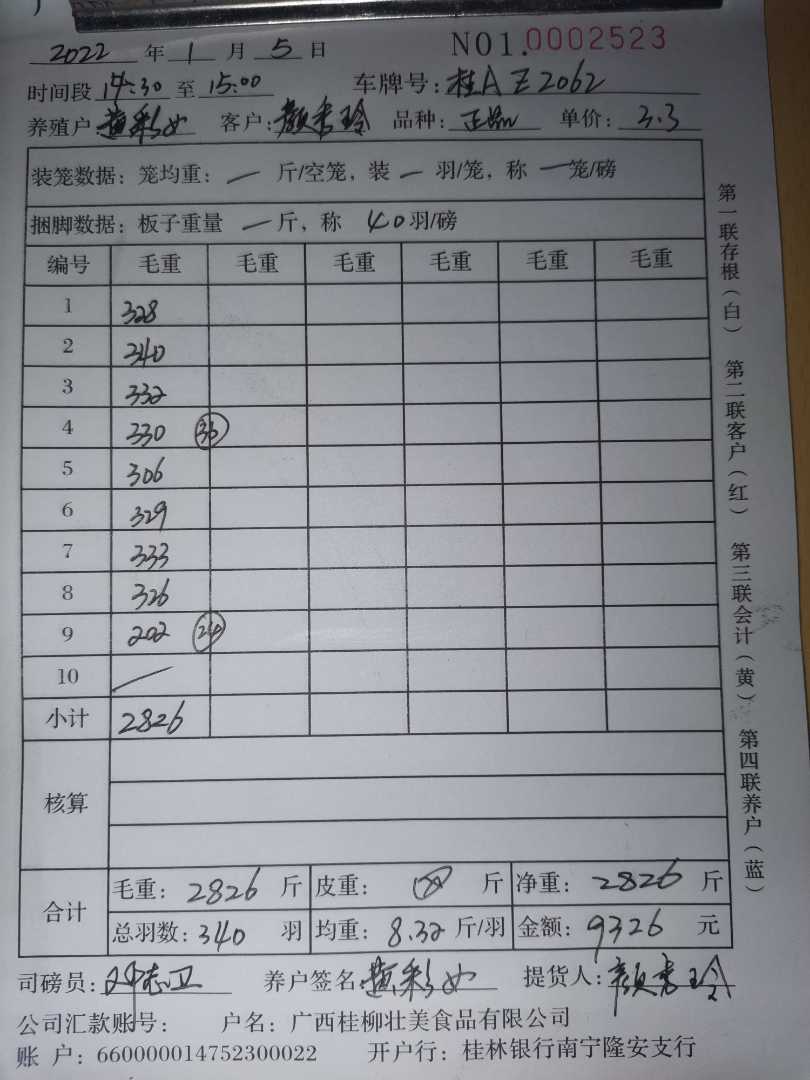 2022 年 1 月 5 日 NO1.0002523
时间段 14:30 至 15:00 车牌号: 桂A Z2062
养殖户: 彩女 客户: 颜秀玲 品种: 正品 单价: 3.3
装笼数据: 笼均重: — 斤/空笼, 装 — 羽/笼, 称 — 笼/磅
捆脚数据: 板子重量 — 斤, 称 40 羽/磅
编号 毛重 毛重 毛重 毛重 毛重 毛重
1 328
2 340
3 332
4 330 36
5 306
6 329
7 333
8 326
9 202 24
10 —
小计 2826
核算
合计 毛重: 2826 斤 皮重: 斤 净重: 2826 斤
总羽数: 340 羽 均重: 8.32 斤/羽 金额: 9326 元
司磅员: 志卫 养户签名: 彩女 提货人: 颜秀玲
公司汇款账号: 户名: 广西桂柳壮美食品有限公司
账 户: 660000014752300022 开户行: 桂林银行南宁隆安支行
第一联存根(白) 第二联客户(红) 第三联会计(黄) 第四联养户(蓝)